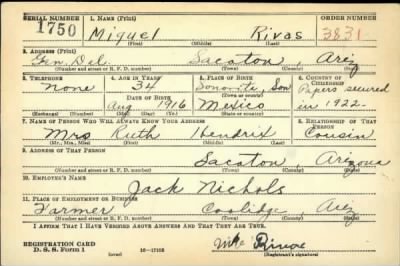 SERIAL NUMBER 1. NAME (Print) ORDER NUMBER
1750 Miguel Rivas 3831
(First) (Middle) (Last)
2. ADDRESS (Print)
Gen. Del. Sacaton, Ariz
(Number and street or R. F. D. number) (Town) (County) (State)
3. TELEPHONE 4. AGE IN YEARS 5. PLACE OF BIRTH 6. COUNTRY OF CITIZENSHIP
None 34 Sonorite, Son Papers secured
DATE OF BIRTH (Town or county)
Aug 1916 Mexico in 1922.
(Mo.) (Day) (Yr.) (State or country)
7. NAME OF PERSON WHO WILL ALWAYS KNOW YOUR ADDRESS 8. RELATIONSHIP OF THAT PERSON
Mrs Ruth Hendrix Cousin
(Mr., Mrs., Miss) (First) (Middle) (Last)
9. ADDRESS OF THAT PERSON
Sacaton, Arizona
(Number and street or R. F. D. number) (Town) (County) (State)
10. EMPLOYER'S NAME
Jack Nichols
11. PLACE OF EMPLOYMENT OR BUSINESS
Farmer Coolidge Ariz
(Number and street or R. F. D. number) (Town) (County) (State)
I AFFIRM THAT I HAVE VERIFIED ABOVE ANSWERS AND THAT THEY ARE TRUE.
REGISTRATION CARD
D. S. S. Form 1 (over) 16—17105 (Registrant's signature)